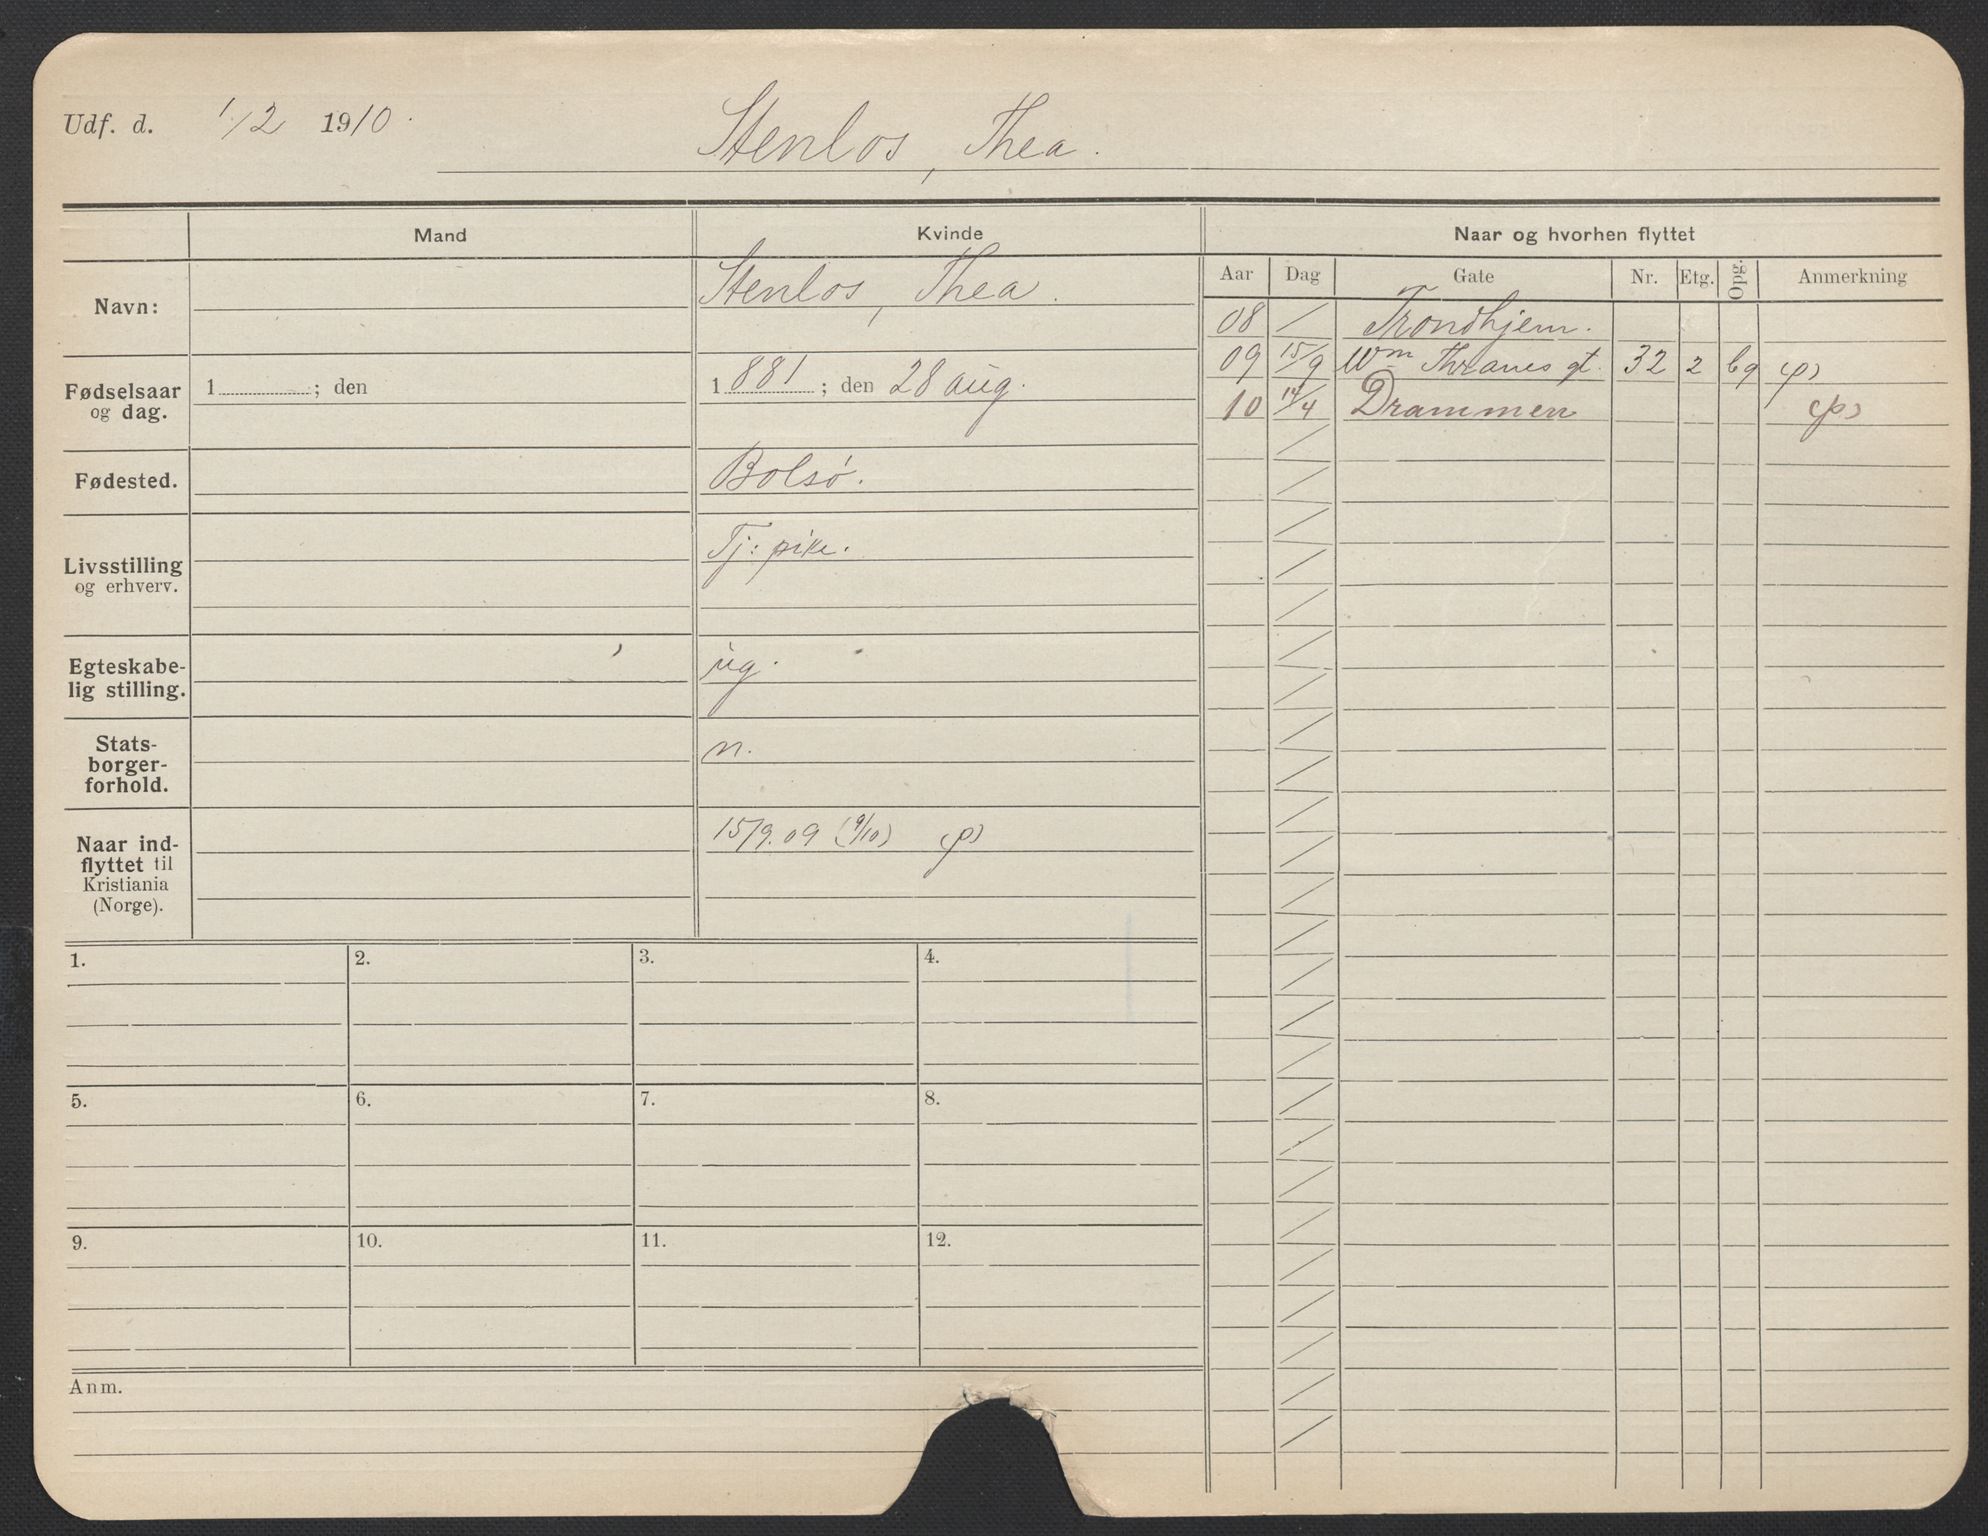 Udf. d. 1/2 1910.
Stenlos, Thea.
Mand Kvinde Naar og hvorhen flyttet
Aar Dag Gate Nr. Etg. Opg. Anmerkning
Navn: Stenlos, Thea.
08 / Trondhjem.
09 15/9 Wm Thranes gt. 32 2 bg (p)
10 14/4 Drammen (p)
Fødselsaar
og dag.
1 ; den
1 881 ; den 28 aug.
Fødested. Bolsø.
Livsstilling
og erhverv.
Tj: pike.
Egteskabe-
lig stilling.
ug.
Stats-
borger-
forhold.
n.
Naar ind-
flyttet til
Kristiania
(Norge).
15/9. 09 (9/10) (p)
1. 2. 3. 4.
5. 6. 7. 8.
9. 10. 11. 12.
Anm.